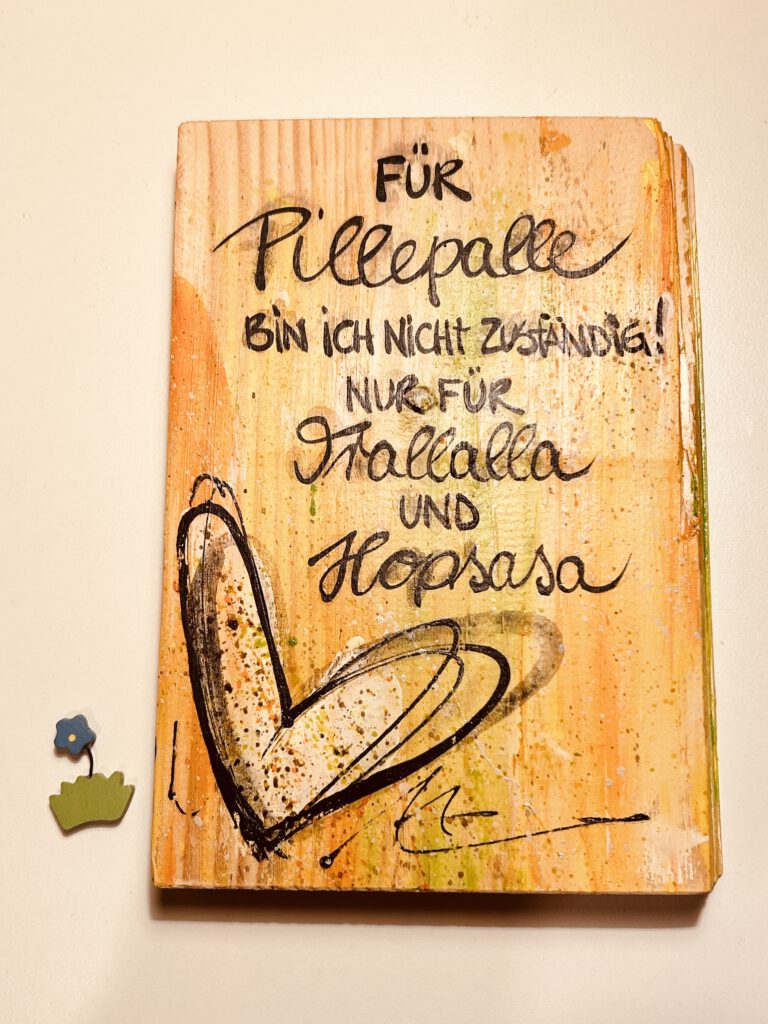 FÜR
Pillepalle
BIN ICH NICHT ZUSTÄNDIG!
NUR FÜR
Trallalla
UND
Hopsasa